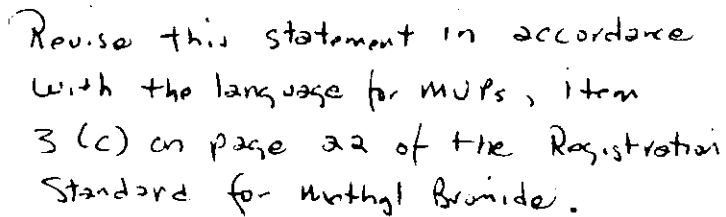 Revise this statement in accordance
with the language for MUPs, item
3 (c) on page 22 of the Registration
Standard for Methyl Bromide.